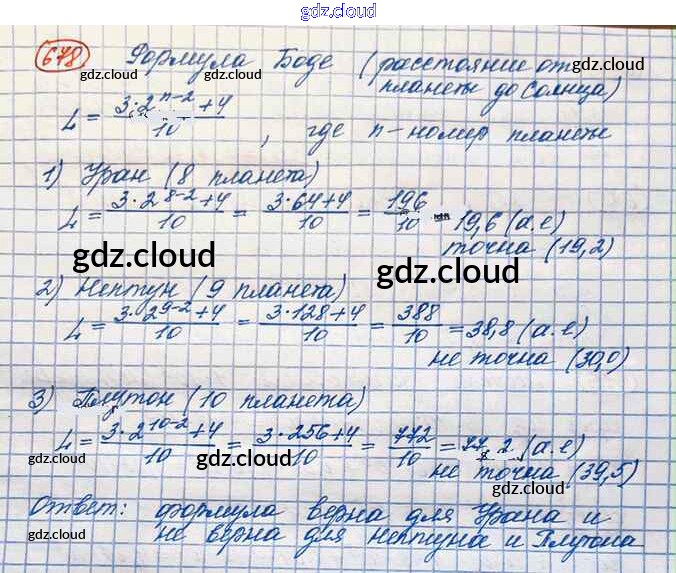 gdz.cloud
gdz.cloud
678 Формула Боде (расстояние от
планеты до Солнца)
gdz.cloud gdz.cloud gdz.cloud
L = (3·2^(n-2) + 4)/10, где n – номер планеты
1) Уран (8 планета)
L = (3·2^(8-2) + 4)/10 = (3·64+4)/10 = 196/10 = 19,6 (а.е)
точна (19,2)
gdz.cloud gdz.cloud
2) Нептун (9 планета)
L = (3·2^(9-2) + 4)/10 = (3·128+4)/10 = 388/10 = 38,8 (а.е)
не точна (30,0)
3) Плутон (10 планета)
L = (3·2^(10-2) + 4)/10 = (3·256+4)/10 = 772/10 = 77,2 (а.е)
gdz.cloud gdz.cloud gdz.cloud
не точна (39,5)
Ответ: формула верна для Урана и
не верна для Нептуна и Плутона
gdz.cloud gdz.cloud gdz.cloud